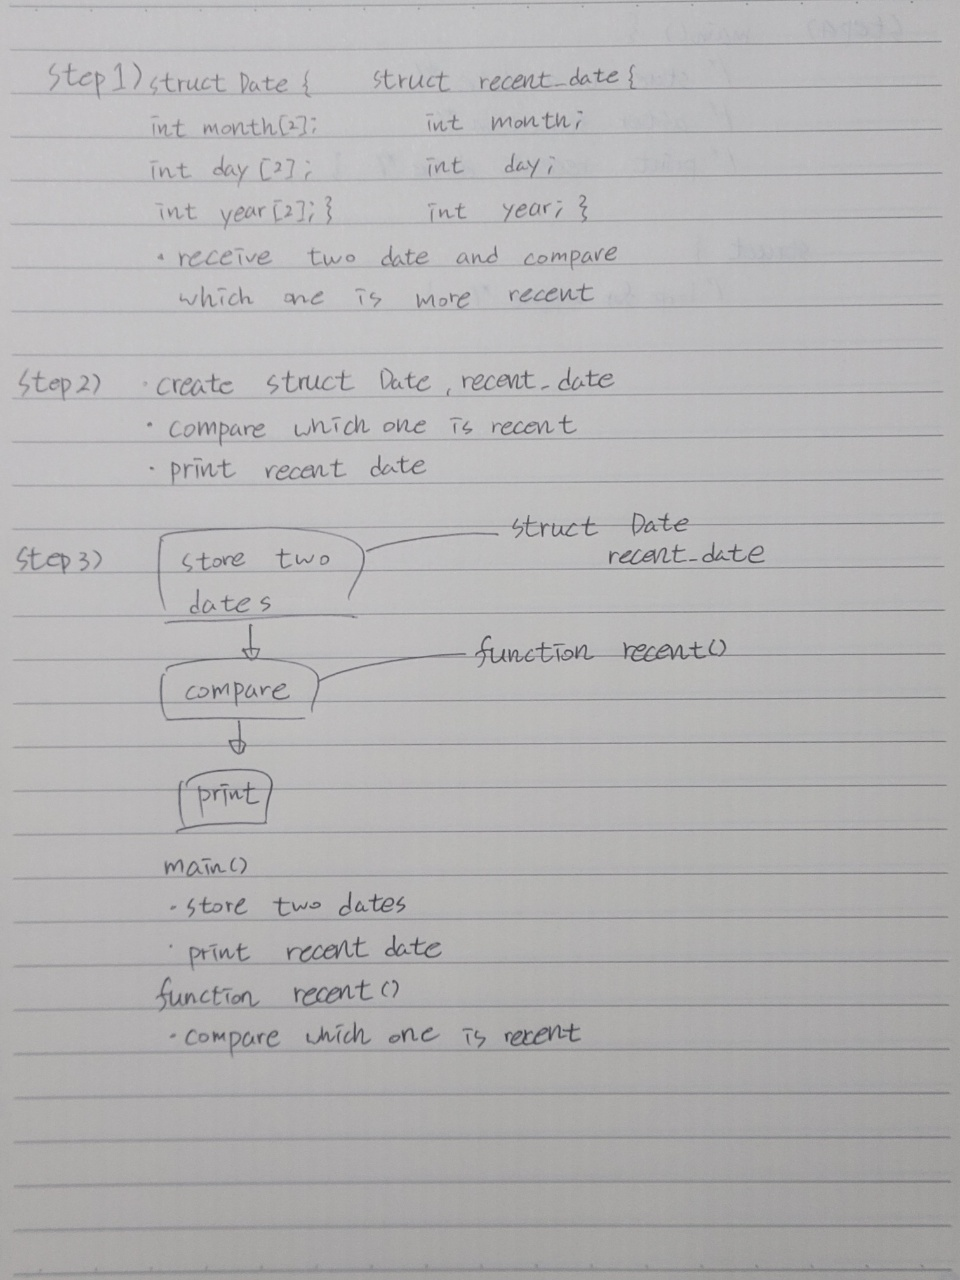 Step 1) struct Date { struct recent_date {
int month[2]; int month;
int day [2]; int day;
int year[2]; } int year; }
· receive two date and compare
which one is more recent
Step 2) · create struct Date, recent_date
· compare which one is recent
· print recent date
Step 3) store two dates
struct Date
recent_date
compare
function recent()
print
main()
· store two dates
· print recent date
function recent()
· compare which one is recent